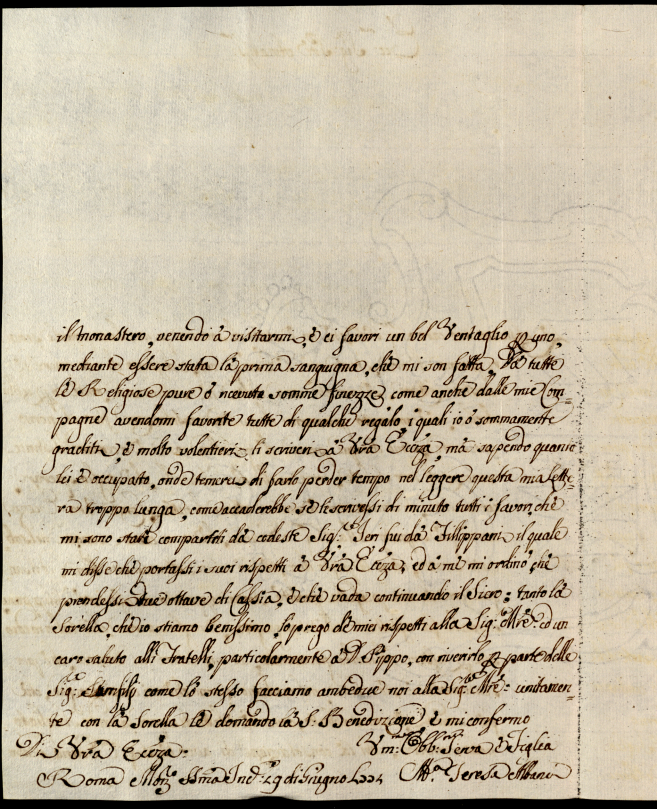 il Monastero, venendo à visitarmi, è ci favorì un bel Ventaglio p uno,
mediante essere stata la prima sanguigna, che mi son fatta, Da tutte
le Religiose pure ò ricevute somme finezze, come anche dalle mie Com=
pagne avendomi favorite tutte di qualche regalo, i quali io ò sommamente
graditi, è molto volentieri li scriverei à Vrà Eccza, mà sapendo quanto
lei è occupato, onde temerei di farlo perder tempo nel leggere questa mia lette=
ra troppo lunga, come accaderebbe se li scrivessi di minuto tutti i favori, che
mi sono stati compartiti da codeste Sig.e Ieri fui dà Filippani, il quale
mi disse che portassi i suoi rispetti à Vrà Eccza, ed à me mi ordinò, che
prendessi due ottave di Cassia, è che vada continuando il Siero: tanto la
Sorella, che io stiamo benissimo, lo prego de miei rispetti alla Sig: Mre: ed un
caro saluto alli Fratelli, particolarmente à D. Pippo, con riverirlo p parte delle
Sig.e come lo stesso facciamo ambedue noi alla Sig: Mre: unitamen=
te con la Sorella le domando la S: Benedizione è mi confermo
Di Vrà Eccza:
Vm: Obb: Serva è Figlia
Roma 29 di Giugno
Ma Teresa Albani